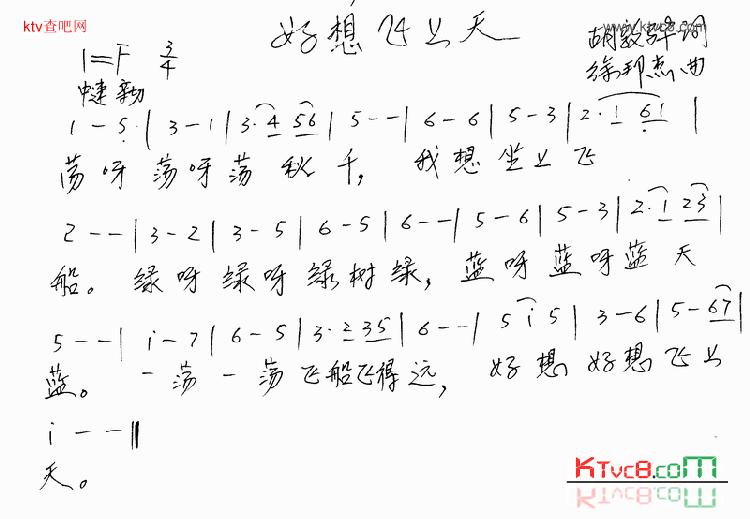 ktv查吧网
www.ktvc8.com
好想飞上天
1=F 3/4
胡敦骅词
徐邦杰曲
中速
1 - 5 | 3 - 1 | 3· 4 56 | 5 - - | 6 - 6 | 5 - 3 | 2· 1 61 |
荡呀荡呀荡秋千，我想坐上飞
2 - - | 3 - 2 | 3 - 5 | 6 - 5 | 6 - - | 5 - 6 | 5 - 3 | 2· 1 23 |
船。绿呀绿呀绿树绿，蓝呀蓝呀蓝天
5 - - | i - 7 | 6 - 5 | 3· 2 35 | 6 - - | 5 i 5 | 3 - 6 | 5 - 67 |
蓝。一荡一荡飞船飞得远，好想好想飞上
i - - ‖
天。
KTvc8.com